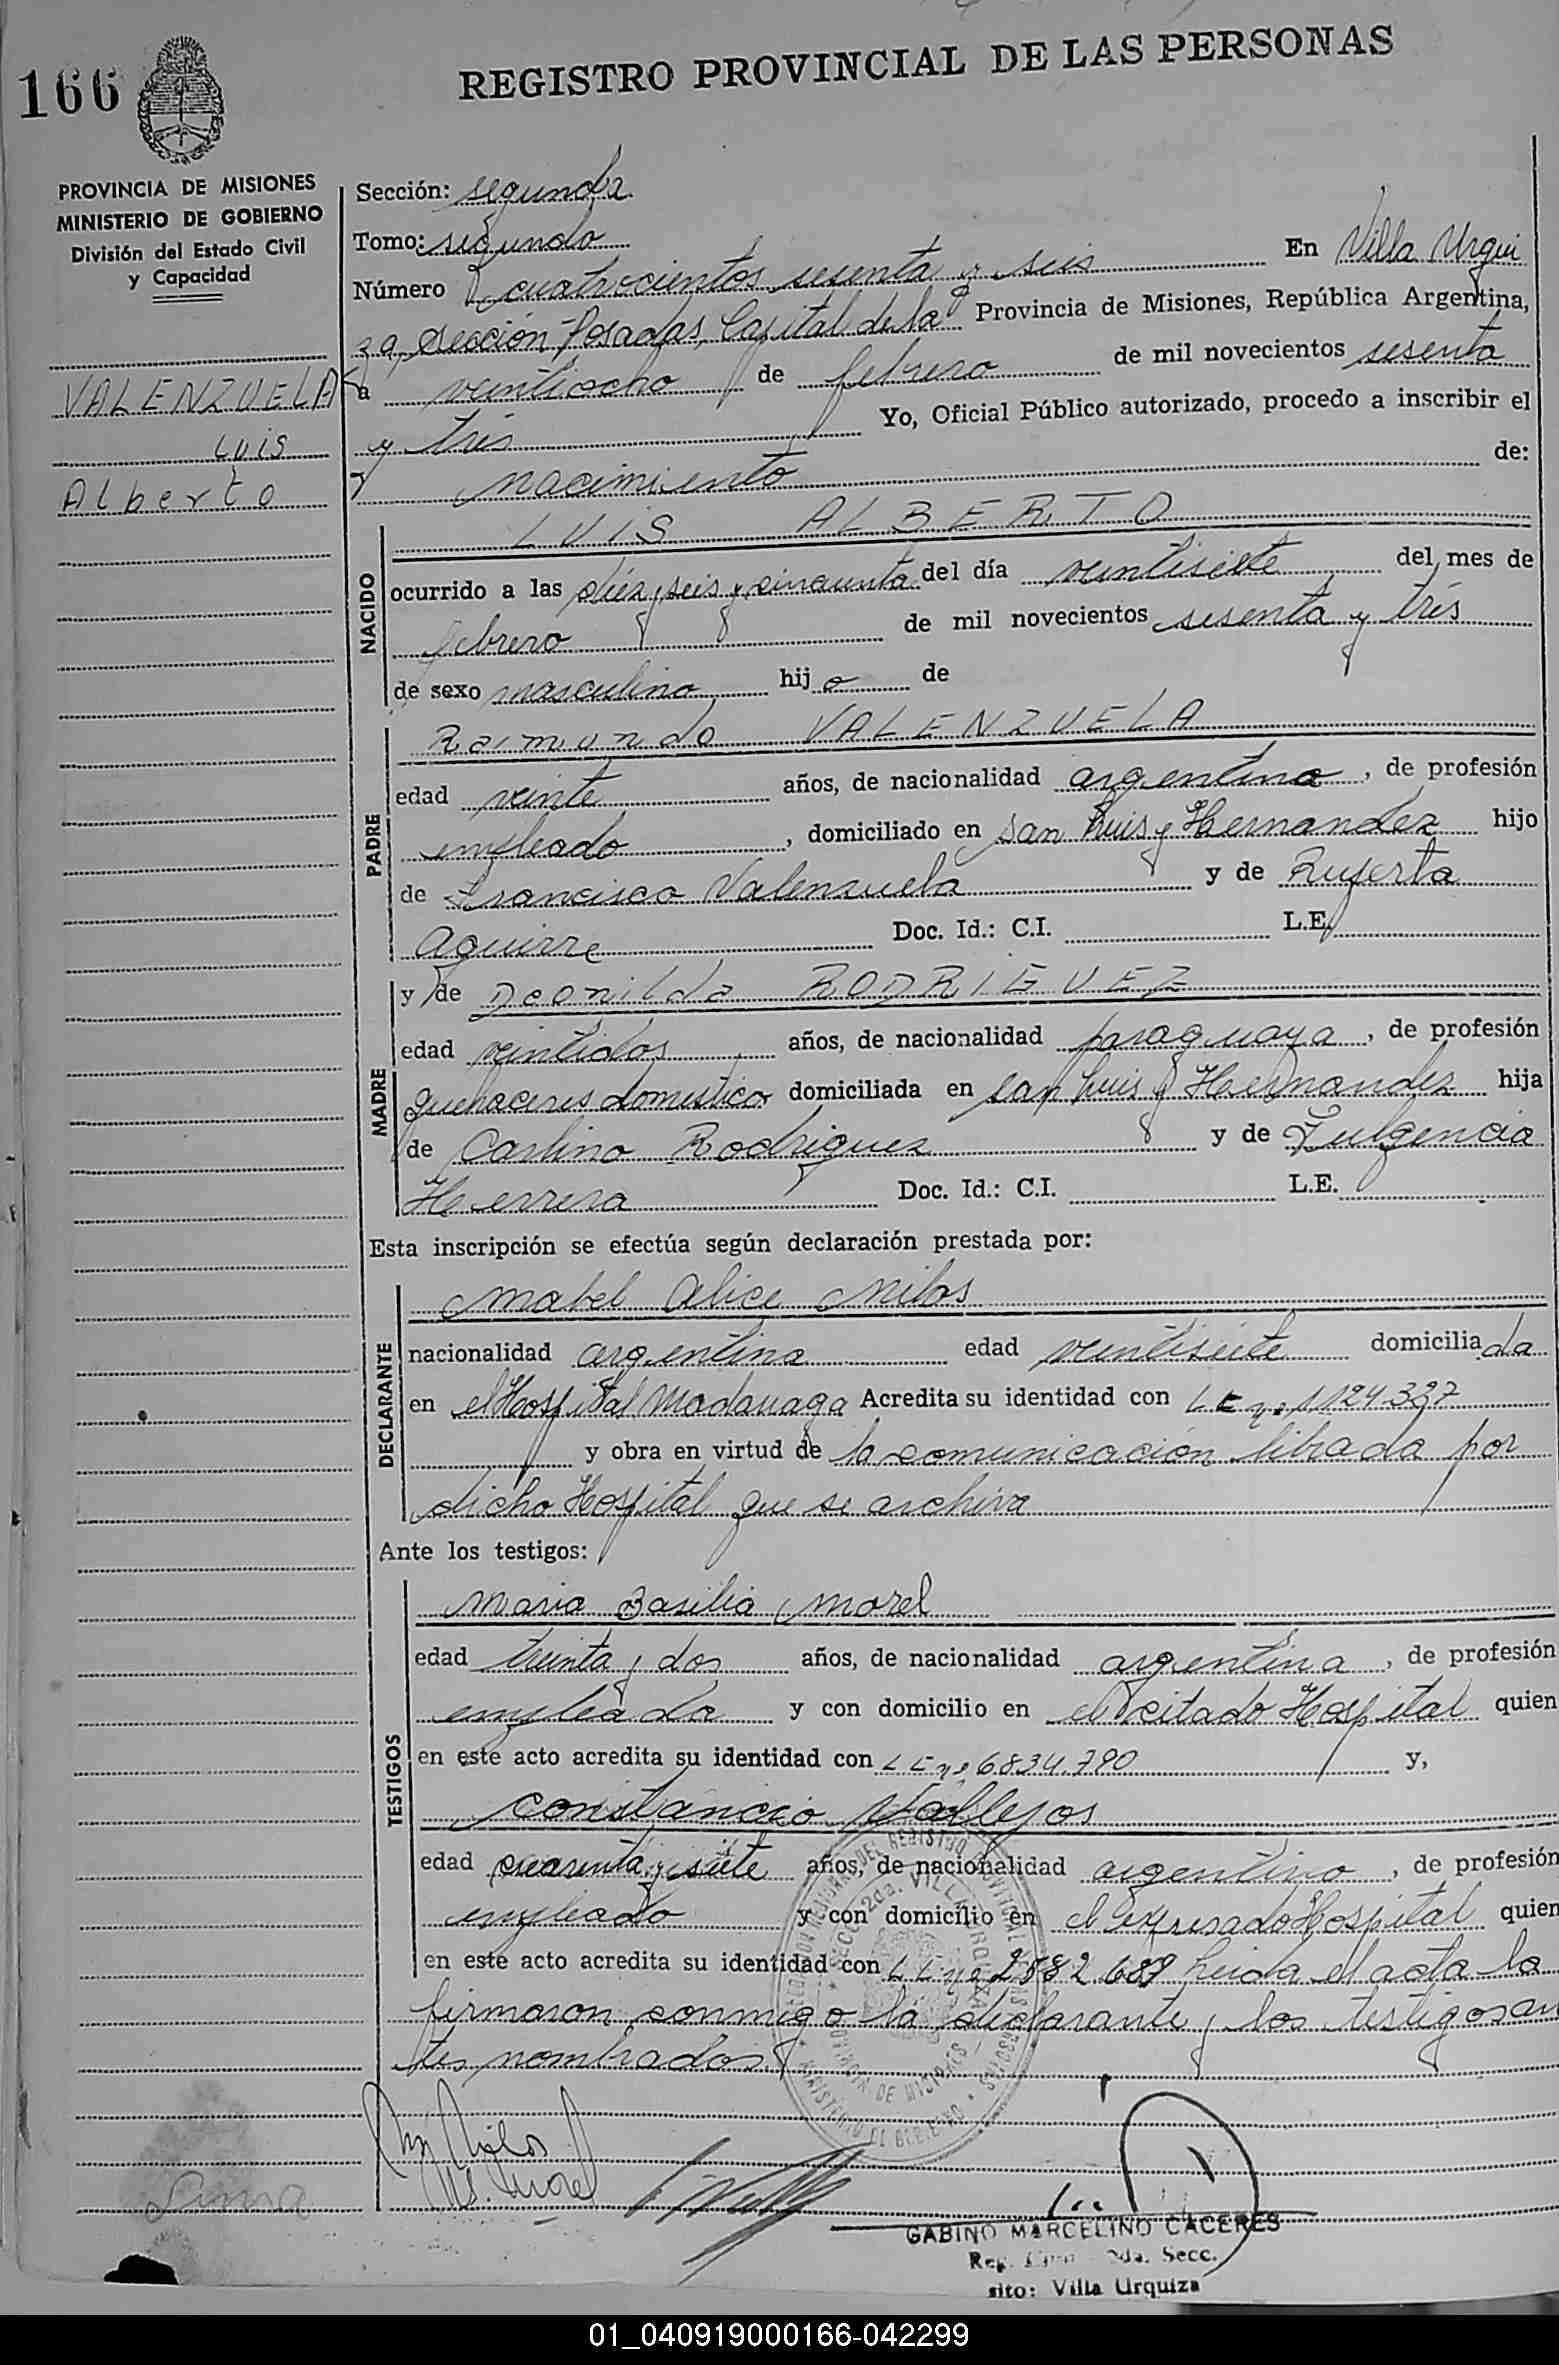 166
REGISTRO PROVINCIAL DE LAS PERSONAS
PROVINCIA DE MISIONES
MINISTERIO DE GOBIERNO
División del Estado Civil
y Capacidad
VALENZUELA
Luis
Alberto
Sección: segunda
Tomo: segundo
Número cuatrocientos sesenta y seis En Villa Urqui
za, Sección Posadas, Capital de la Provincia de Misiones, República Argentina,
a veintiocho de febrero de mil novecientos sesenta
y tres Yo, Oficial Público autorizado, procedo a inscribir el
nacimiento de:
NACIDO
LUIS ALBERTO
ocurrido a las diez y seis y cincuenta del día veintisiete del mes de
febrero de mil novecientos sesenta y trés
de sexo masculino hijo de
PADRE
Raimundo VALENZUELA
edad veinte años, de nacionalidad argentina, de profesión
empleado, domiciliado en San Luis y Hernandez hijo
de Francisco Valenzuela y de Ruferta
Aguirre Doc. Id.: C.I. L.E.
MADRE
y de Deonilda RODRIGUEZ
edad veintidos años, de nacionalidad paraguaya, de profesión
quehaceres domesticos domiciliada en San Luis y Hernandez hija
de Carlino Rodriguez y de Fulgencia
Herrera Doc. Id.: C.I. L.E.
Esta inscripción se efectúa según declaración prestada por:
DECLARANTE
Mabel Alice Milos
nacionalidad argentina edad veintisiete domiciliada
en el Hospital Madariaga Acredita su identidad con L E nº 1124327
y obra en virtud de la comunicación librada por
dicho Hospital que se archiva
Ante los testigos:
TESTIGOS
Maria Basilia Morel
edad treinta y dos años, de nacionalidad argentina, de profesión
empleada y con domicilio en el citado Hospital quien
en este acto acredita su identidad con L E nº 6834.790 y,
Constancio Vallejos
edad cuarenta y siete años, de nacionalidad argentino, de profesión
empleado y con domicilio en el expresado Hospital quien
en este acto acredita su identidad con L E nº 2582689 Leida el acta la
firmaron conmigo la declarante y los testigos an
tes nombrados
GABINO MARCELINO CACERES
2da. Secc.
sito: Villa Urquiza
01_040919000166-042299